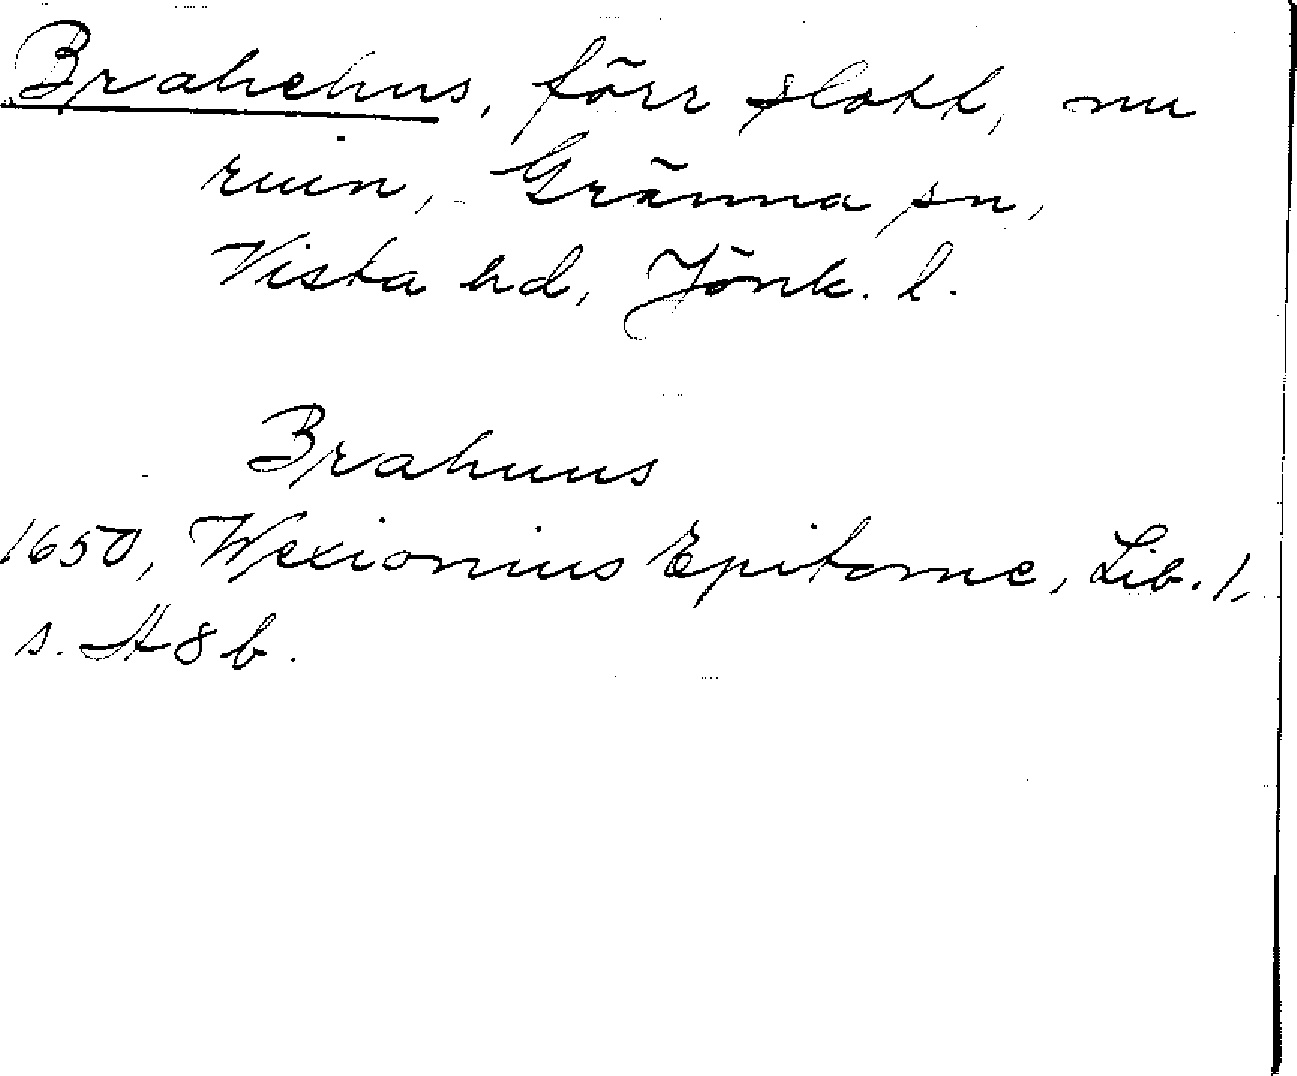 Brahehus, förr slott, nu
ruin, Gränna sn,
Vista hd, Jönk. l.
Brahuus
1650, Wexionius Epitome, Lib. 1,
s. H 8 b.